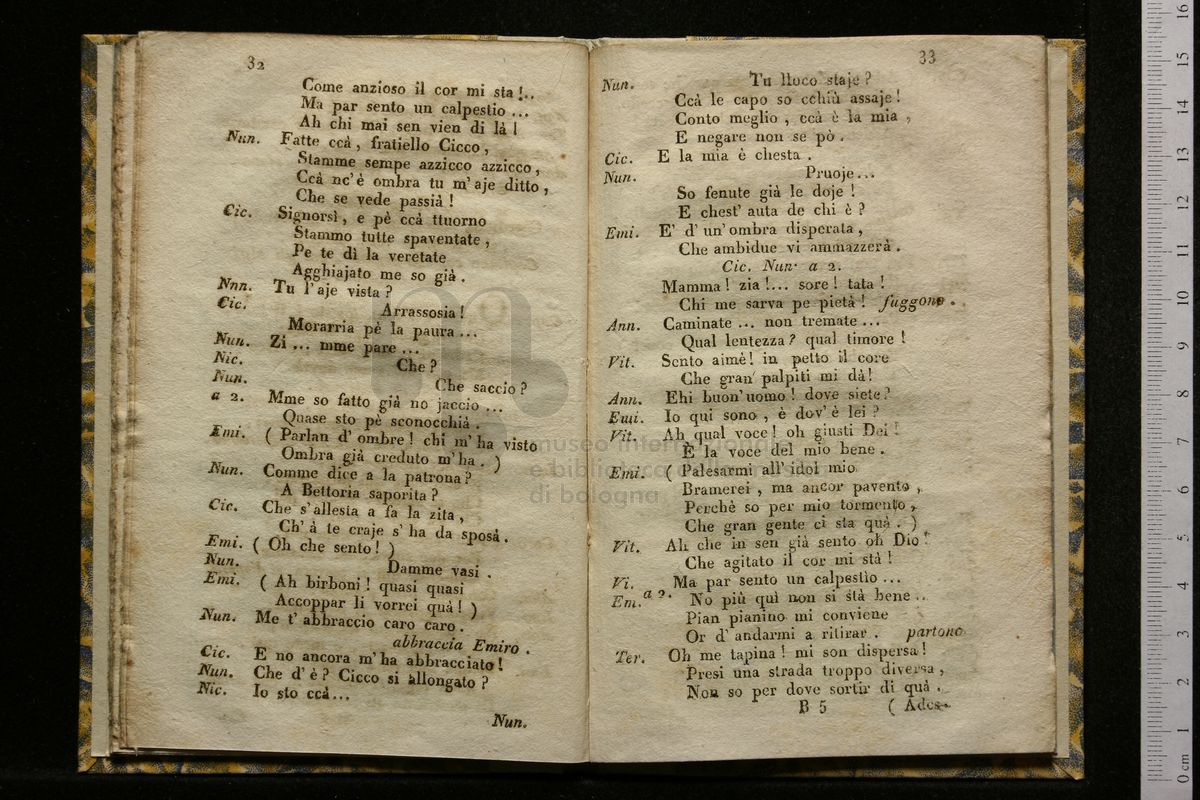 32
Come anzioso il cor mi sta !..
Ma par sento un calpestio ...
Ah chi mai sen vien di là !
Nun. Fatte ccà , fratiello Cicco ,
Stamme sempe azzicco azzicco ,
Ccà nc' è ombra tu m' aje ditto ,
Che se vede passià !
Cic. Signorsì , e pè ccà ttuorno
Stammo tutte spaventate ,
Pe te dì la veretate
Agghiajato me so già .
Nnn. Tu l' aje vista ?
Cic. Arrassosia !
Morarria pè la paura ...
Nun. Zi ... mme pare ...
Nic. Che ?
Nun. Che saccio ?
a 2. Mme so fatto già no jaccio ...
Quase sto pè sconocchià .
Emi. ( Parlan d' ombre ! chi m' ha visto
Ombra già creduto m' ha . )
Nun. Comme dice a la patrona ?
A Bettoria saporita ?
Cic. Che s' allesta a fa la zita ,
Ch' à te craje s' ha da sposà .
Emi. ( Oh che sento ! )
Nun. Damme vasi .
Emi. ( Ah birboni ! quasi quasi
Accoppar li vorrei quà ! )
Nun. Me t' abbraccio caro caro .
abbraccia Emiro .
Cic. E no ancora m' ha abbracciato !
Nun. Che d' è ? Cicco si allongato ?
Nic. Io sto ccà ...
Nun.
33
Nun. Tu lloco staje ?
Ccà le capo so cchiù assaje !
Conto meglio , ccà è la mia ,
E negare non se pò .
Cic. E la mia è chesta .
Nun. Pruoje...
So fenute già le doje !
E chest' auta de chi è ?
Emi. E' d' un' ombra disperata ,
Che ambidue vi ammazzerà .
Cic. Nun. a 2.
Mamma ! zia !... sore ! tata !
Chi me sarva pe pietà ! fuggono .
Ann. Caminate ... non tremate ...
Qual lentezza ? qual timore !
Vit. Sento aimè ! in petto il core
Che gran' palpiti mi dà !
Ann. Ehi buon' uomo ! dove siete ?
Emi. Io qui sono , è dov' è lei ?
Vit. Ah qual voce ! oh giusti Dei !
È la voce del mio bene .
Emi. ( Palesarmi all' idol mio
Bramerei , ma ancor pavento ,
Perchè so per mio tormento ,
Che gran gente ci sta quà . )
Vit. Ah che in sen già sento oh Dio !
Che agitato il cor mi stà !
Vi. Ma par sento un calpestìo ...
Em. a 2. No più quì non si stà bene ..
Pian pianino mi conviene
Or d' andarmi a ritirar . partono
Ter. Oh me tapina ! mi son dispersa !
Presi una strada troppo diversa ,
Non so per dove sortir di quà .
B 5 ( Ades-
museo internazionale
e biblioteca della musica
di bologna
0 cm 1 2 3 4 5 6 7 8 9 10 11 12 13 14 15 16